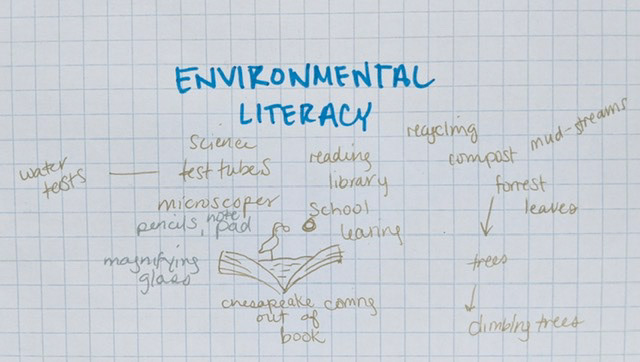 ENVIRONMENTAL
LITERACY
water
tests
science
test tubes
microscoper
pencils, note pad
magnifying
glass
reading
library
school
learing
chesapeake coming
out of
book
recycling
compost
mud-streams
forrest
leaves
trees
climbing trees